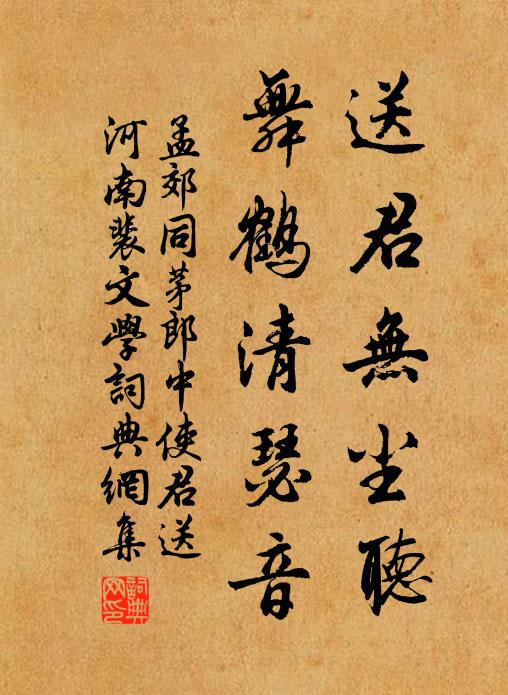 送君無尘聽
舞鶴清瑟音
孟郊同茅郎中使君送
河南裴文學詞典網集
詞典
网印